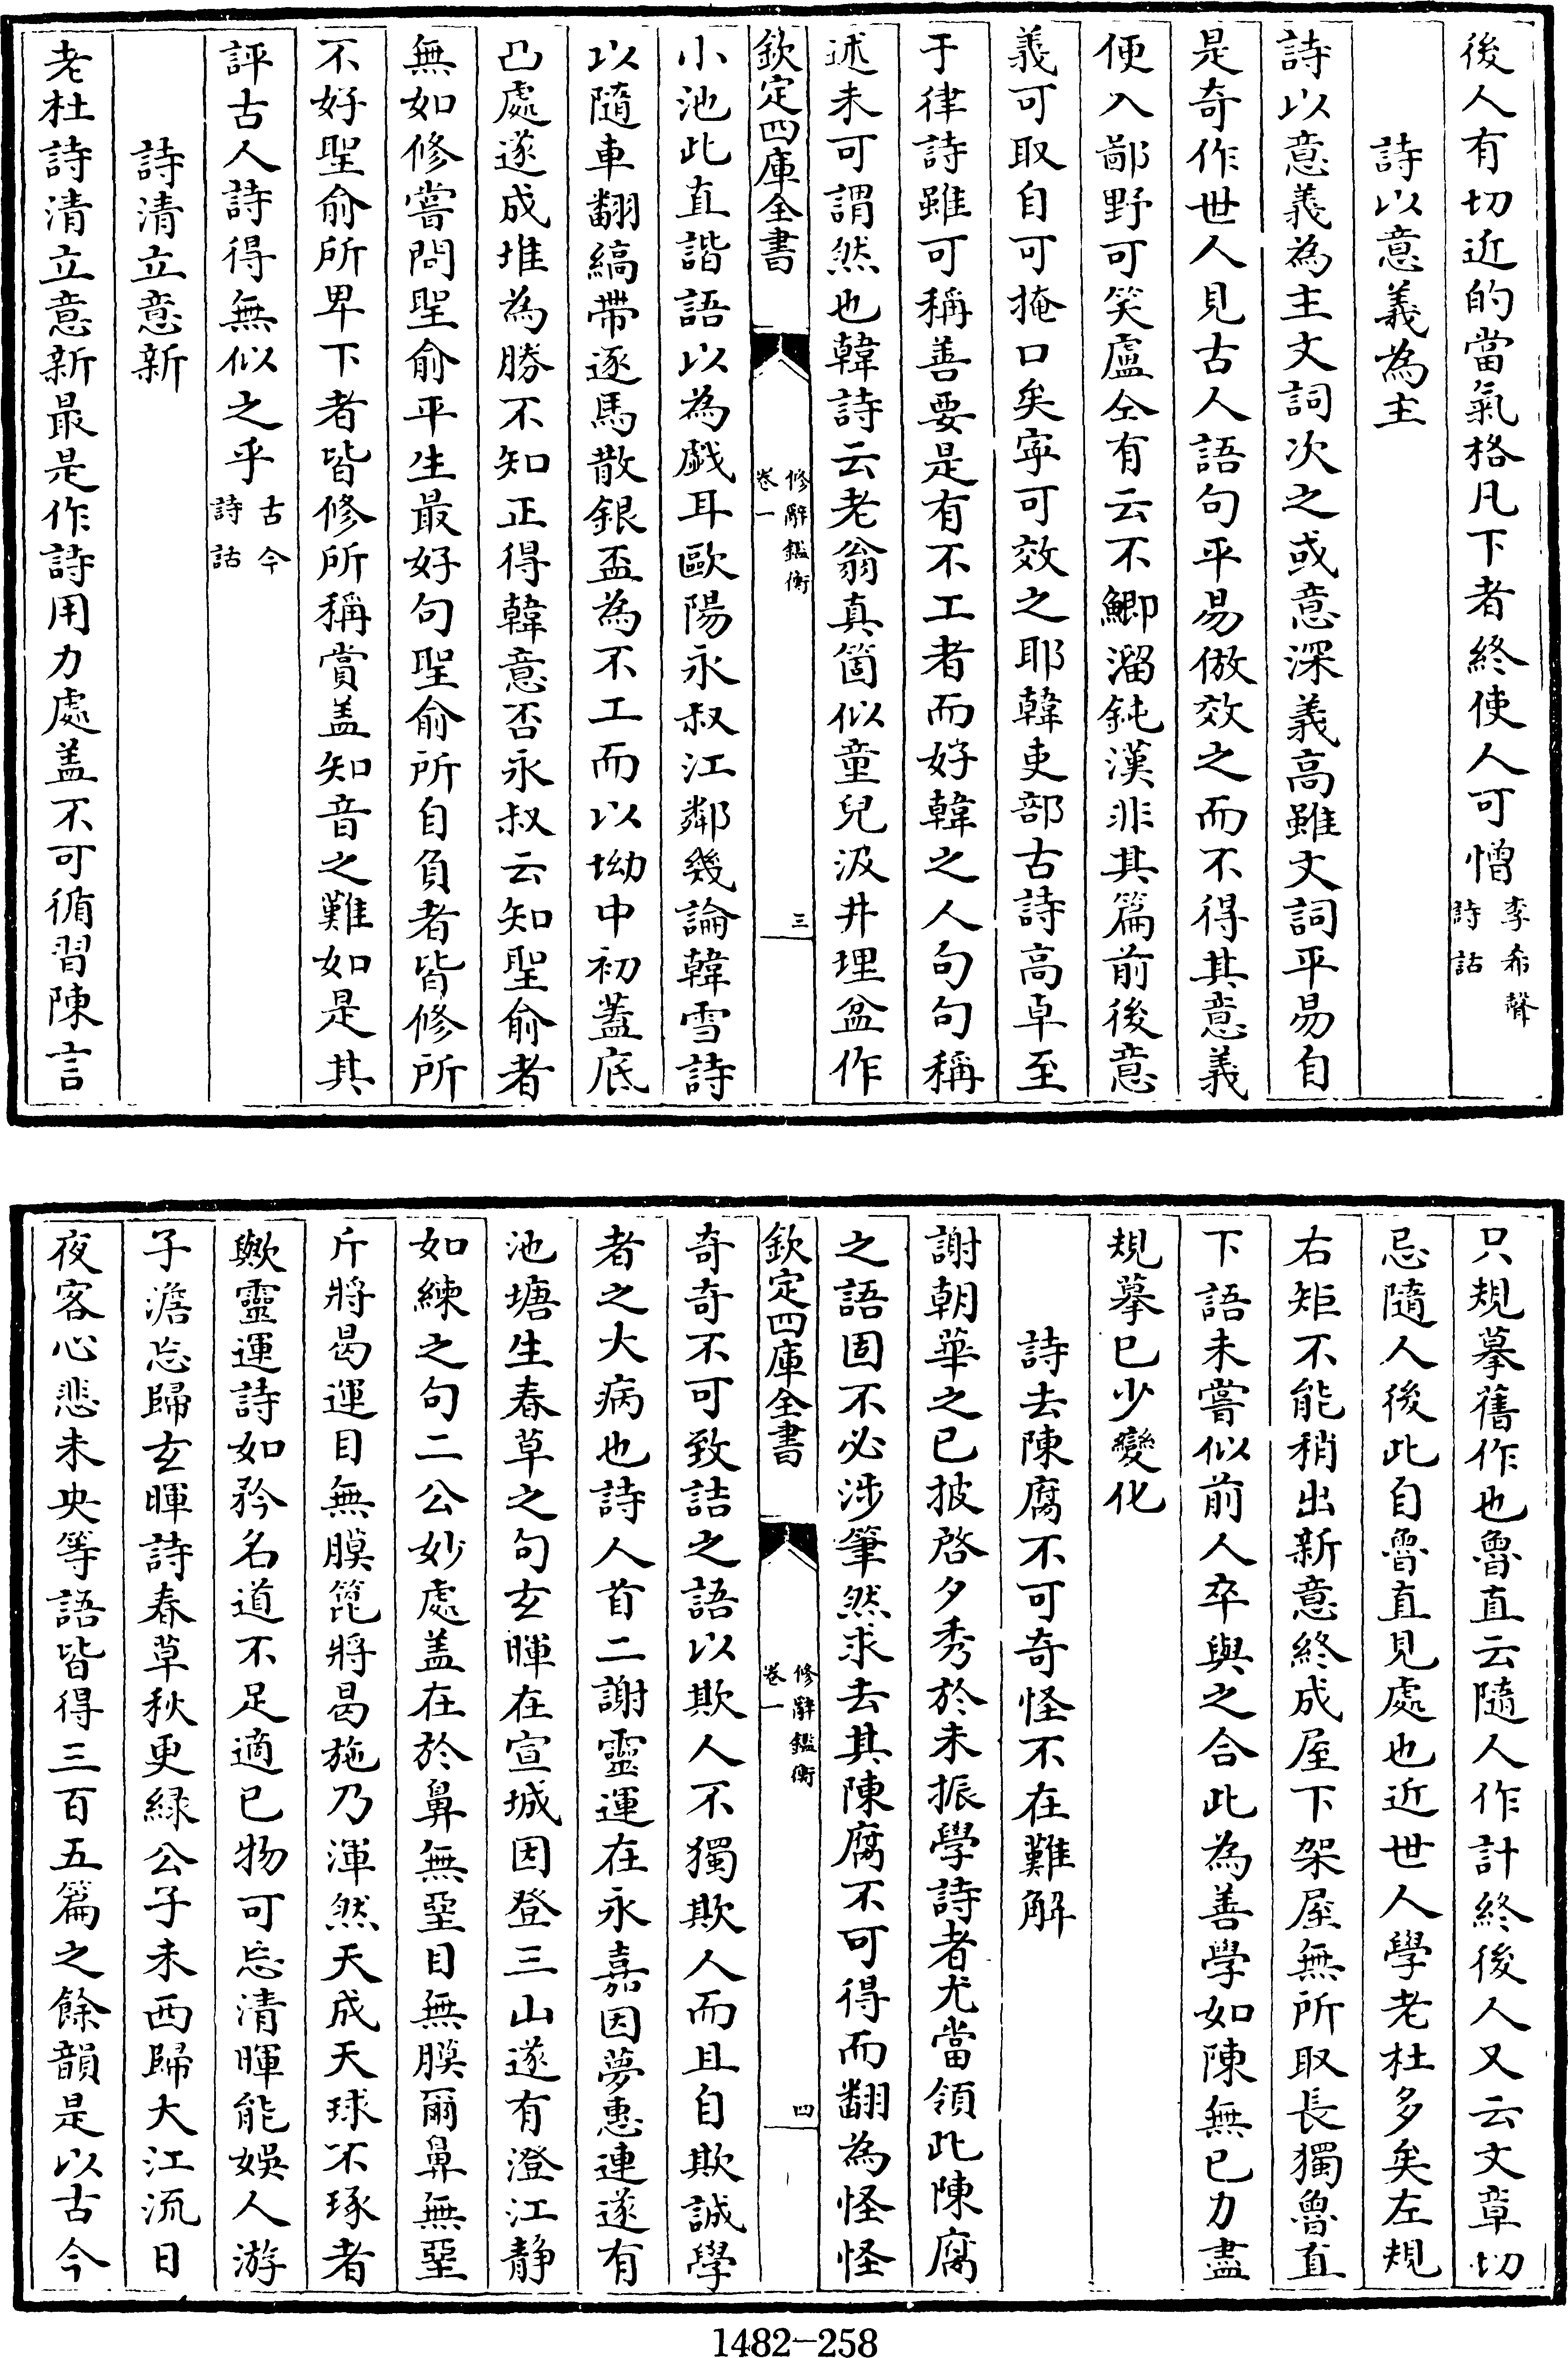 後人有切近的當氣格凡下者終使人可憎李希聲詩話
詩以意義為主
詩以意義為主文詞次之或意深義高雖文詞平易自
是奇作世人見古人語句平易倣效之而不得其意義
便入鄙野可笑盧仝有云不鯽溜鈍漢非其篇前後意
義可取自可掩口矣寜可效之耶韓吏部古詩高卓至
于律詩雖可稱善要是有不工者而好韓之人句句稱
述未可謂然也韓詩云老翁真箇似童兒汲井埋盆作
欽定四庫全書 修辭鑑衡 卷一 三
小池此直諧語以為戯耳歐陽永叔江鄰幾論韓雪詩
以隨車翻縞帶逐馬散銀盃為不工而以坳中初蓋底
凸處遂成堆為勝不知正得韓意否永叔云知聖俞者
無如修嘗問聖俞平生最好句聖俞所自負者皆修所
不好聖俞所卑下者皆修所稱賞盖知音之難如是其
評古人詩得無似之乎古今詩話
詩清立意新
老杜詩清立意新最是作詩用力處盖不可循習陳言
只規摹舊作也魯直云隨人作計終後人又云文章切
忌隨人後此自魯直見處也近世人學老杜多矣左規
右矩不能稍出新意終成屋下架屋無所取長獨魯直
下語未嘗似前人卒與之合此為善學如陳無已力盡
規摹已少變化
詩去陳腐不可奇怪不在難解
謝朝華之已披啓夕秀於未振學詩者尤當領此陳腐
之語固不必涉筆然求去其陳腐不可得而翻為怪怪
欽定四庫全書 修辭鑑衡 卷一 四
奇奇不可致詰之語以欺人不獨欺人而且自欺誠學
者之大病也詩人首二謝靈運在永嘉因夢惠連遂有
池塘生春草之句玄暉在宣城因登三山遂有澄江静
如練之句二公妙處盖在於鼻無堊目無膜爾鼻無堊
斤將曷運目無膜篦將曷施乃渾然天成天球不琢者
歟靈運詩如矜名道不足適已物可忘清暉能娛人游
子澹忘歸玄暉詩春草秋更緑公子未西歸大江流日
夜客心悲未央等語皆得三百五篇之餘韻是以古今
1482-258